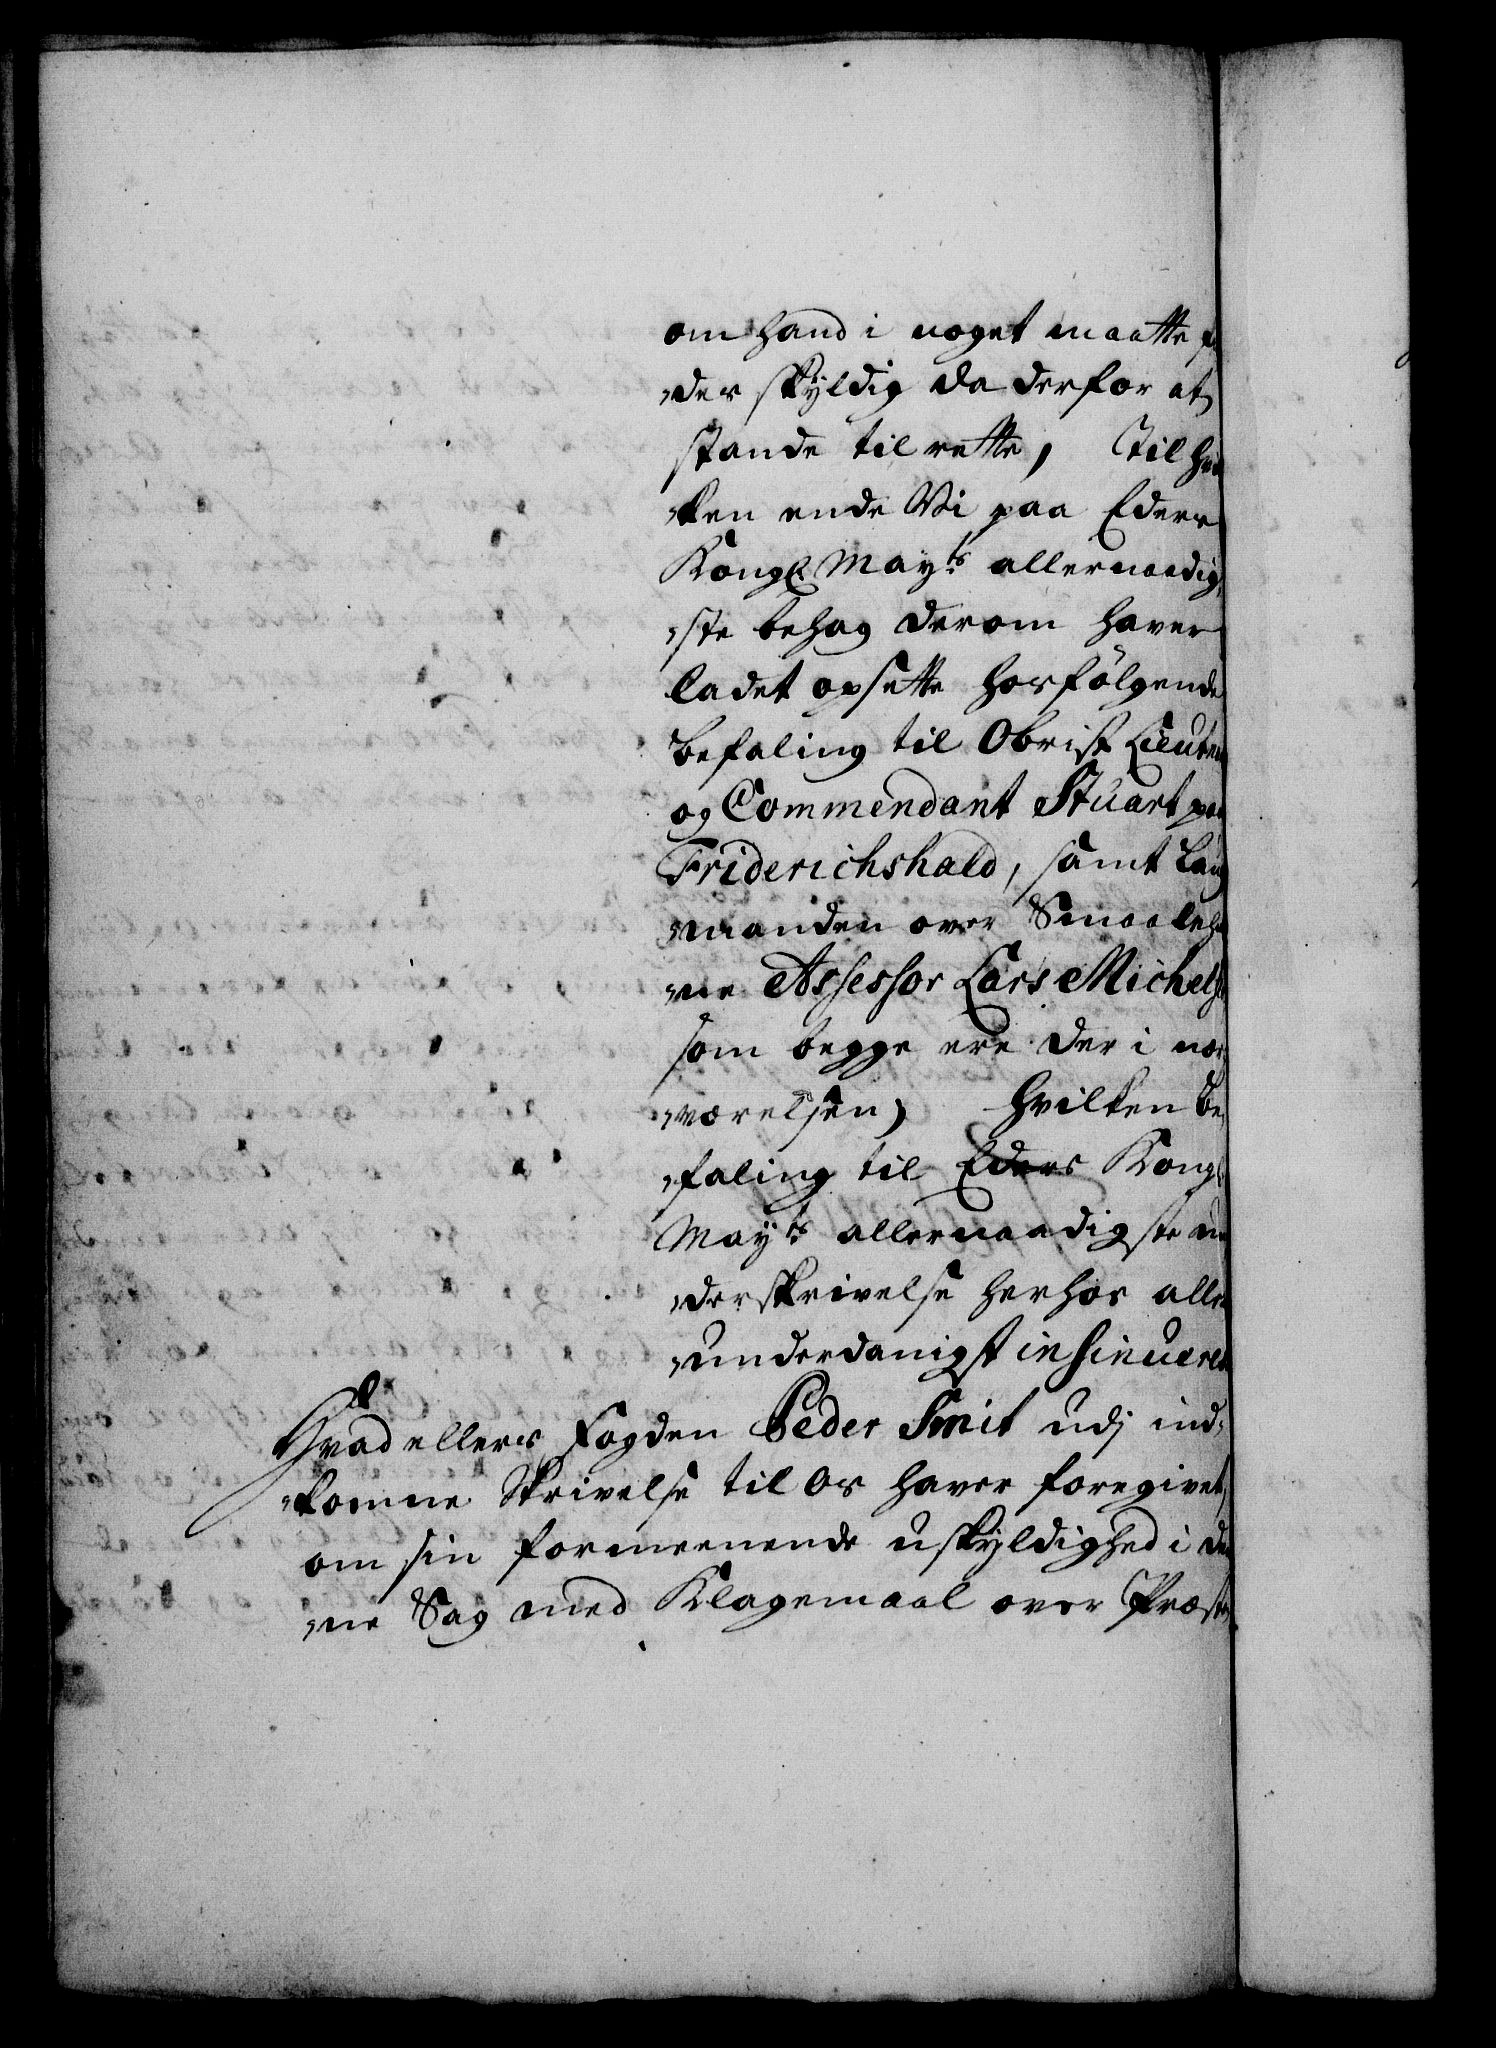 om hand i noget maatte f
der skyldig da derfor at
stande til rette, Til hvil
ken ende Vi paa Eders
Kongl. Mayts allernaadig,
ste behag derom haver
ladet opsette hosfölgende
befaling til Obrist Lieuten
og Commendant Stuart paa
Friderichshald, samt Laug
manden over Smaaleh
ne Assessor Lars Michels
som begge ere der i nær,
værelsen, Hvilken be,
faling til Eders Kongl
Mayts allernaadigste un
derskrivelse herhos aller
underdanigst insinueres
Hvad ellers Fogden Peder Smit udj ind,
komne Skrivelse til Os haver foregivet,
om sin formeenende uskyldighed i den
ne Sag med Klagemaal over Præst